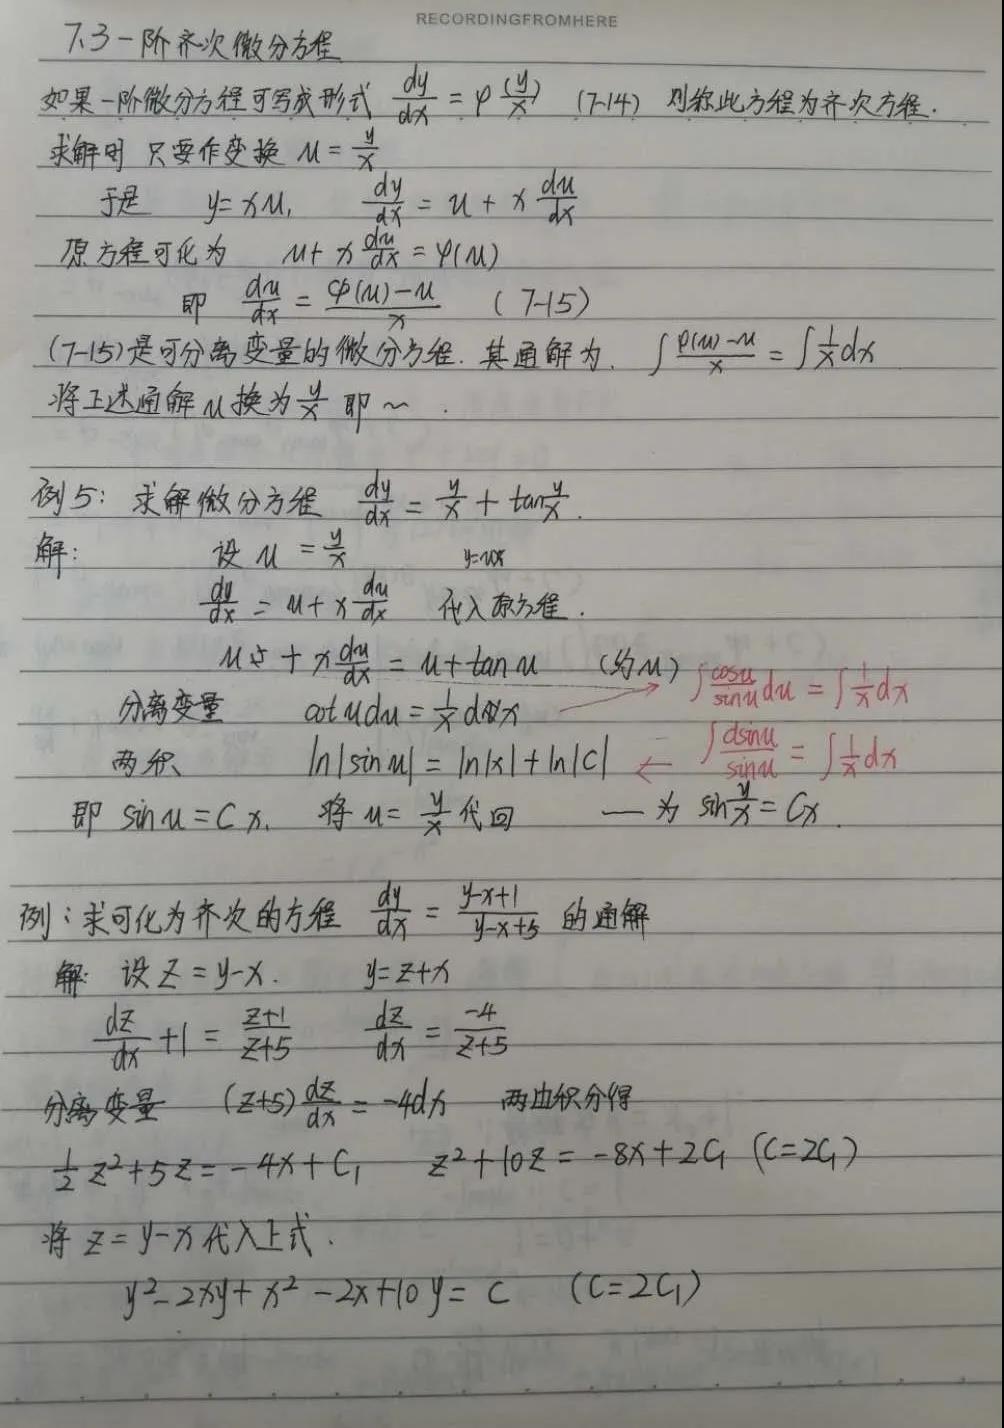 RECORDINGFROMHERE
7.3 一阶齐次微分方程
如果一阶微分方程可写成形式 dy/dx = φ(y/x) (7-14) 则称此方程为齐次方程.
求解时 只要作变换 u = y/x
于是 y = xu, dy/dx = u + x du/dx
原方程可化为 u + x du/dx = φ(u)
即 du/dx = (φ(u)-u)/x (7-15)
(7-15)是可分离变量的微分方程. 其通解为. ∫(φ(u)-u)/x = ∫1/x dx
将上述通解 u 换为 y/x 即 ~ .
例5: 求解微分方程 dy/dx = y/x + tan y/x.
解: 设 u = y/x y=ux
dy/dx = u + x du/dx 代入原方程.
u + x du/dx = u + tan u (约u) ∫cosu/sinu du = ∫1/x dx
分离变量 cot u du = 1/x dx
两积 ln|sin u| = ln|x| + ln|C| ← ∫dsinu/sinu = ∫1/x dx
即 sin u = C x. 将 u = y/x 代回 — 为 sin y/x = Cx.
例: 求可化为齐次的方程 dy/dx = (y-x+1)/(y-x+5) 的通解
解: 设 z = y-x. y = z+x
dz/dx + 1 = (z+1)/(z+5) dz/dx = -4/(z+5)
分离变量 (z+5) dz/dx = -4dx 两边积分得
1/2 z² + 5z = -4x + C₁ z² + 10z = -8x + 2C₁ (C=2C₁)
将 z = y-x 代入上式.
y² - 2xy + x² - 2x + 10y = C (C=2C₁)